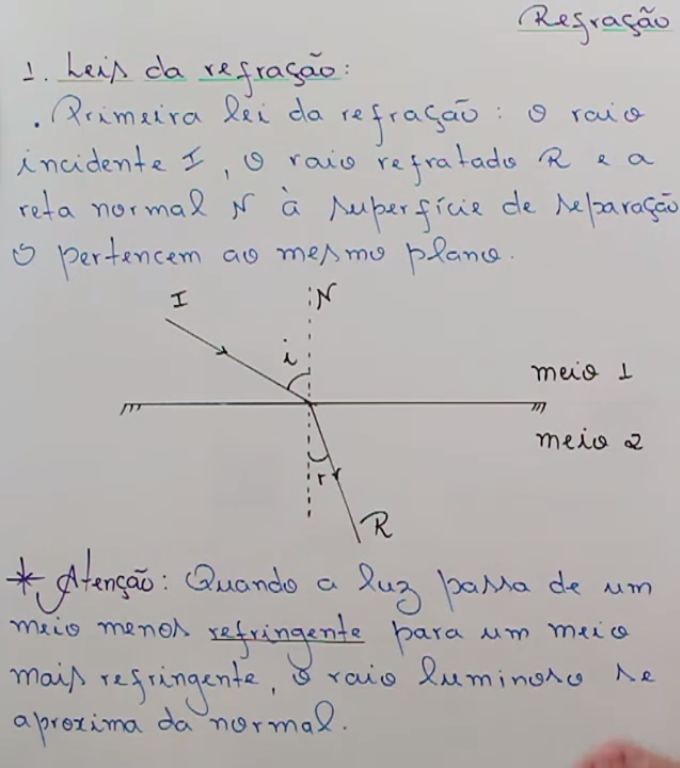 Refração
1. Leis da refração:
. Primeira lei da refração: o raio
incidente I, o raio refratado R e a
reta normal N à superfície de separação
S pertencem ao mesmo plano.
I
N
i
meio 1
meio 2
r
R
* Atenção: Quando a luz passa de um
meio menos refringente para um meio
mais refringente, o raio luminoso se
aproxima da normal.